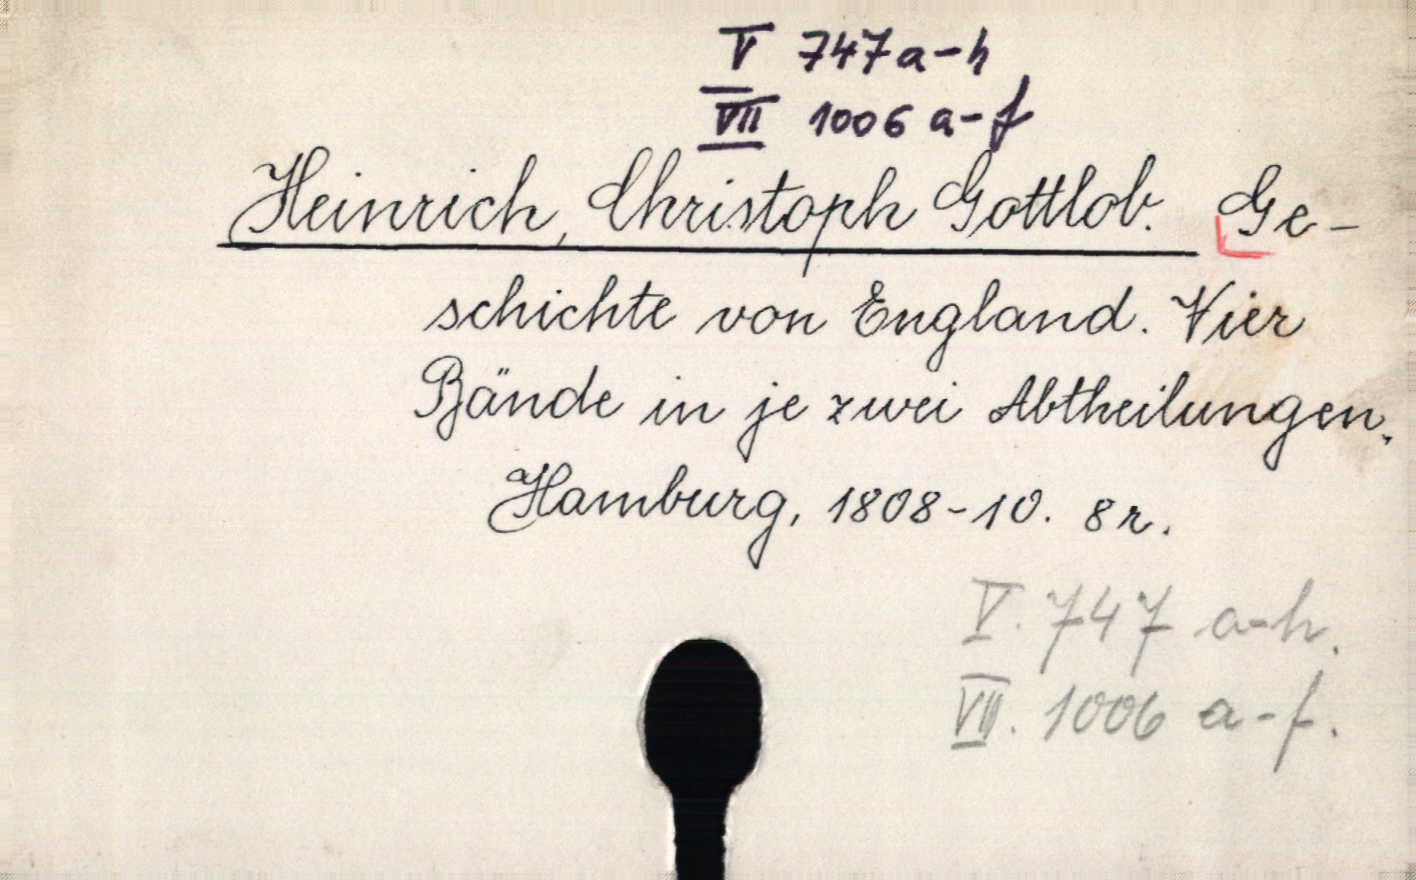 V 747 a-h
VII 1006 a-f
Heinrich, Christoph Gottlob. Ge-
schichte von England. Vier
Bände in je zwei Abtheilungen.
Hamburg, 1808-10. 8r.
V. 747 a-h.
VII. 1006 a-f.